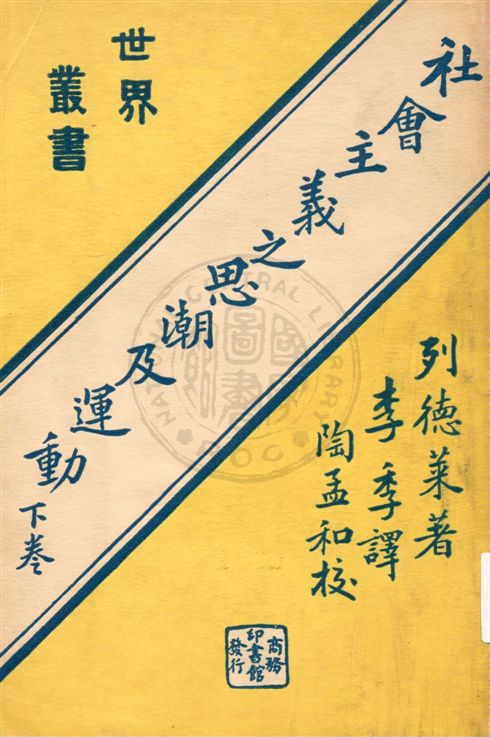 世界
叢書
社會主義之思潮及運動下卷
列德萊著
李季譯
陶孟和校
商務
印書館
發行
NATIONAL CENTRAL LIBRARY
ROC